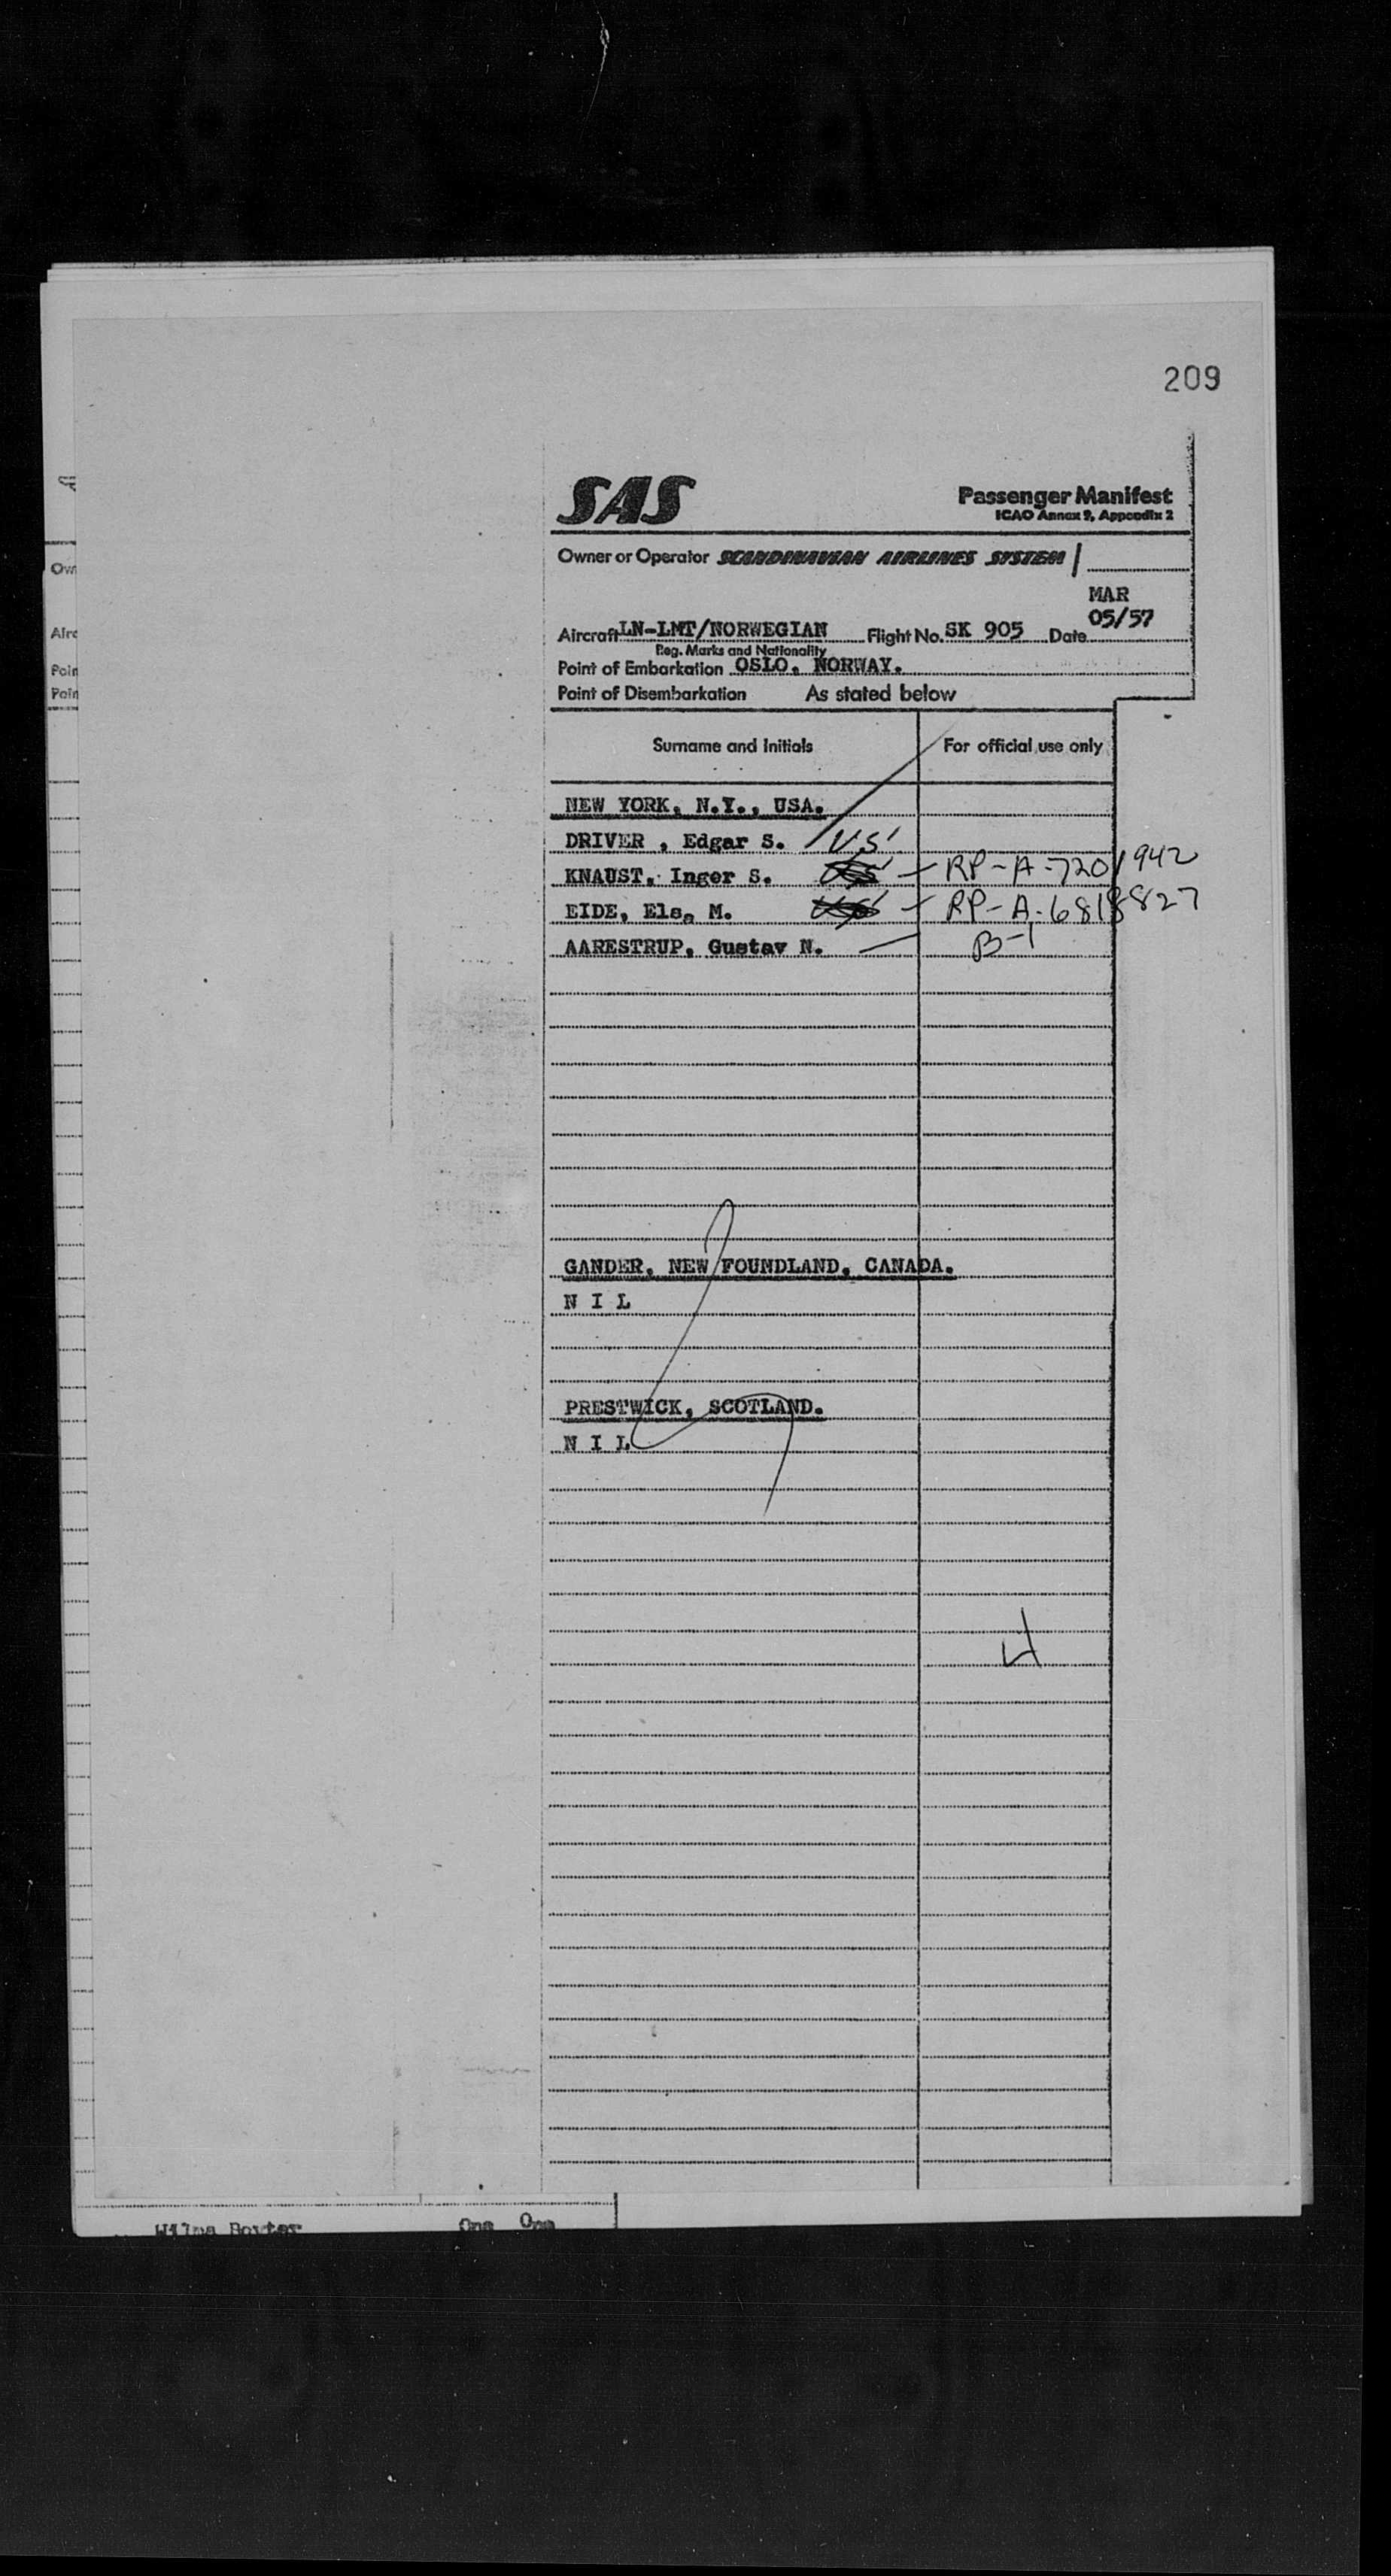 209
SAS
Passenger Manifest
ICAO Annex 9, Appendix 2
Owner or Operator SCANDINAVIAN AIRLINES SYSTEM
MAR
05/57
Aircraft LN-LMT/NORWEGIAN Flight No. SK 905 Date
Reg. Marks and Nationality
Point of Embarkation OSLO, NORWAY.
Point of Disembarkation As stated below
Surname and Initials For official use only
NEW YORK, N.Y., USA.
DRIVER , Edgar S. US
KNAUST, Inger S. RP-A-7201942
EIDE, Elsa M. RP-A-6818827
AARESTRUP, Gustav N. B-1
GANDER, NEW FOUNDLAND, CANADA.
N I L
PRESTWICK, SCOTLAND.
N I L
4
One One